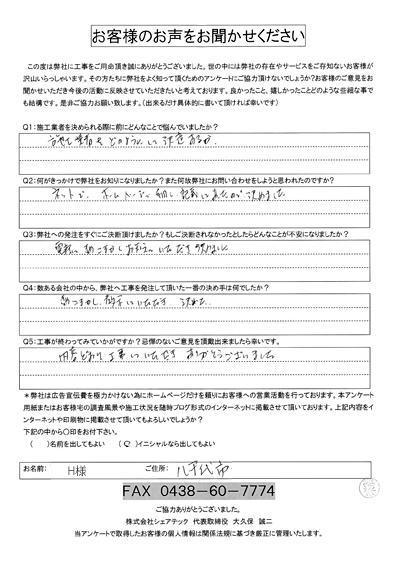 お客様のお声をお聞かせください
この度は弊社に工事をご用命頂き誠にありがとうございました。世の中には弊社の存在やサービスをご存知ないお客様が
沢山いらっしゃいます。その方たちに弊社をよく知って頂くためのアンケートにご協力頂けないでしょうか？お客様のご意見をお
聞かせいただき今後の活動に反映させていただきたいと考えております。良かったこと、嬉しかったことどのような些細な事で
も結構です。是非ご協力お願い致します。（出来るだけ具体的に書いて頂ければ幸いです）
Q1：施工業者を決められる際に前にどんなことで悩んでいましたか？
Q2：何がきっかけで弊社をお知りになりましたか？また何故弊社にお問い合わせをしようと思われたのですか？
ネットで、ホームページ
決めました
Q3：弊社への発注をすぐにご決断頂けましたか？もしご決断されなかったとしたらどんなことが不安になりましたか？
いただき決めました
Q4：数ある会社の中から、弊社へ工事を発注して頂いた一番の決め手は何でしたか？
いただき 決めた
Q5：工事が終わってみていかがですか？忌憚のないご意見を頂戴出来ましたら幸いです。
工事していただき ありがとうございました
＊弊社は広告宣伝費を極力かけない為にホームページだけを頼りにお客様への営業活動を行っております。本アンケート
用紙またはお客様宅の調査風景や施工状況を随時ブログ形式のインターネットに掲載させて頂いております。上記内容をイ
ンターネットや印刷物に掲載させて頂いてもよろしいでしょうか？
下記の中から〇印をお付下さい。
（　）名前を出してもよい （〇）イニシャルなら出してもよい
お名前： H様 ご住所： 八千代市
FAX 0438－60－7774
ご協力ありがとうございました。
株式会社シェアテック 代表取締役 大久保 誠二
当アンケートで取得したお客様の個人情報は関係法規に基づき厳正に管理いたします。